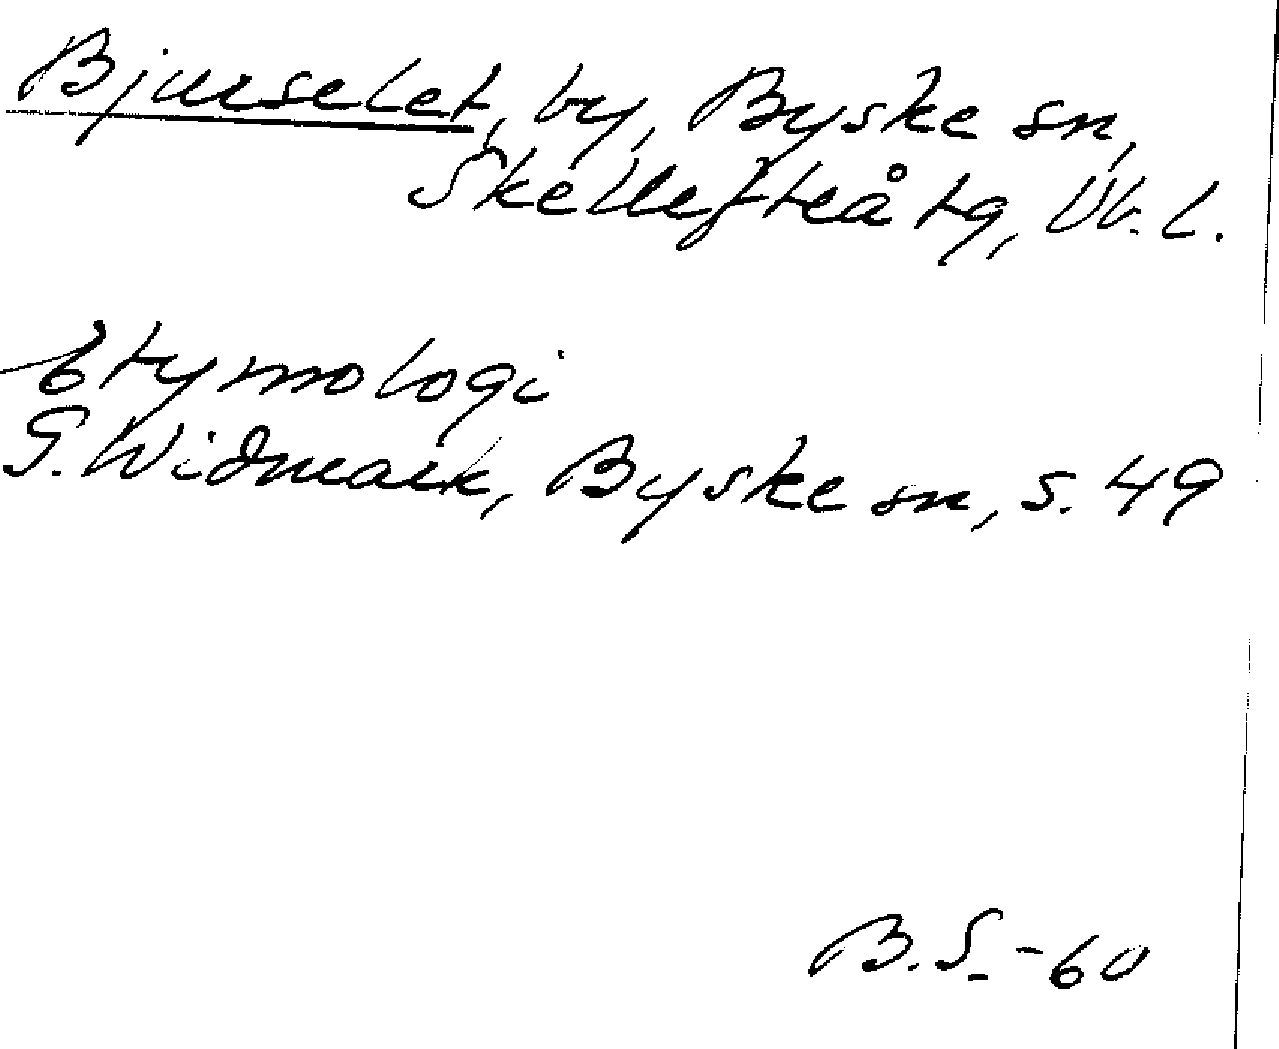 Bjurselet, by, Byske sn,
Skellefteå tg, Vb. l.
Etymologi
G. Widmark, Byske sn, s. 49
B.S.-60